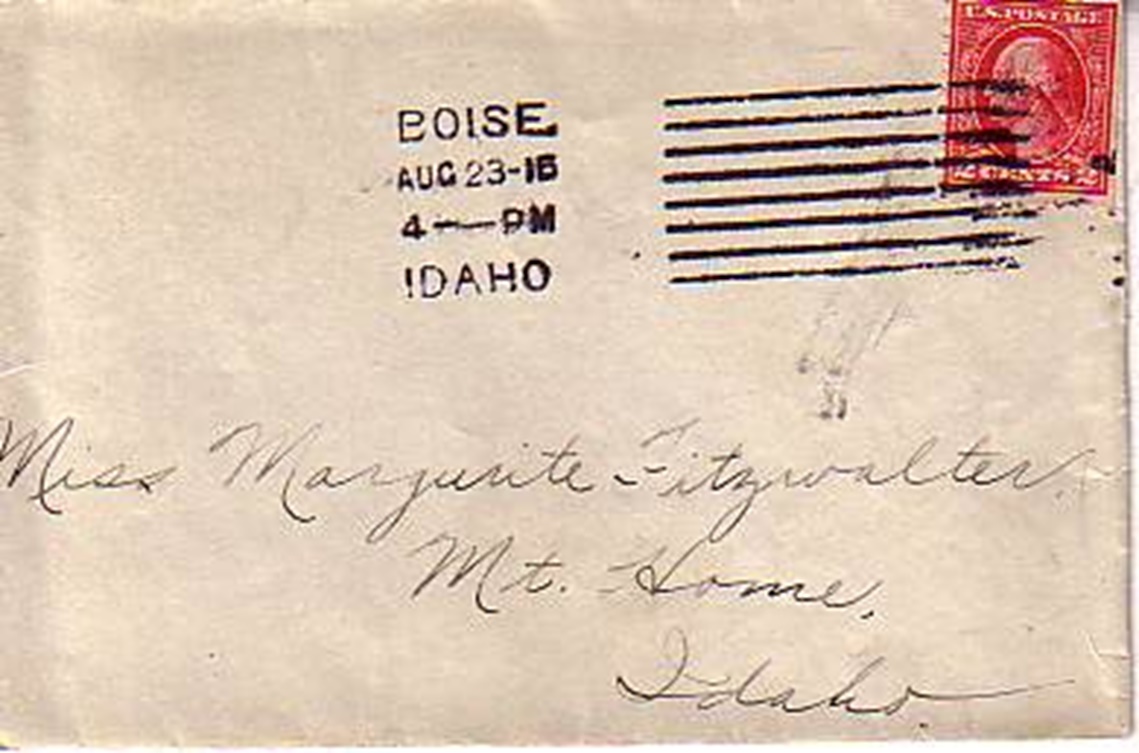 U.S. POSTAGE
2 CENTS 2
BOISE
AUG 23-15
4—PM
IDAHO
Miss Margurite Fitzwalter.
Mt. Home,
Idaho.